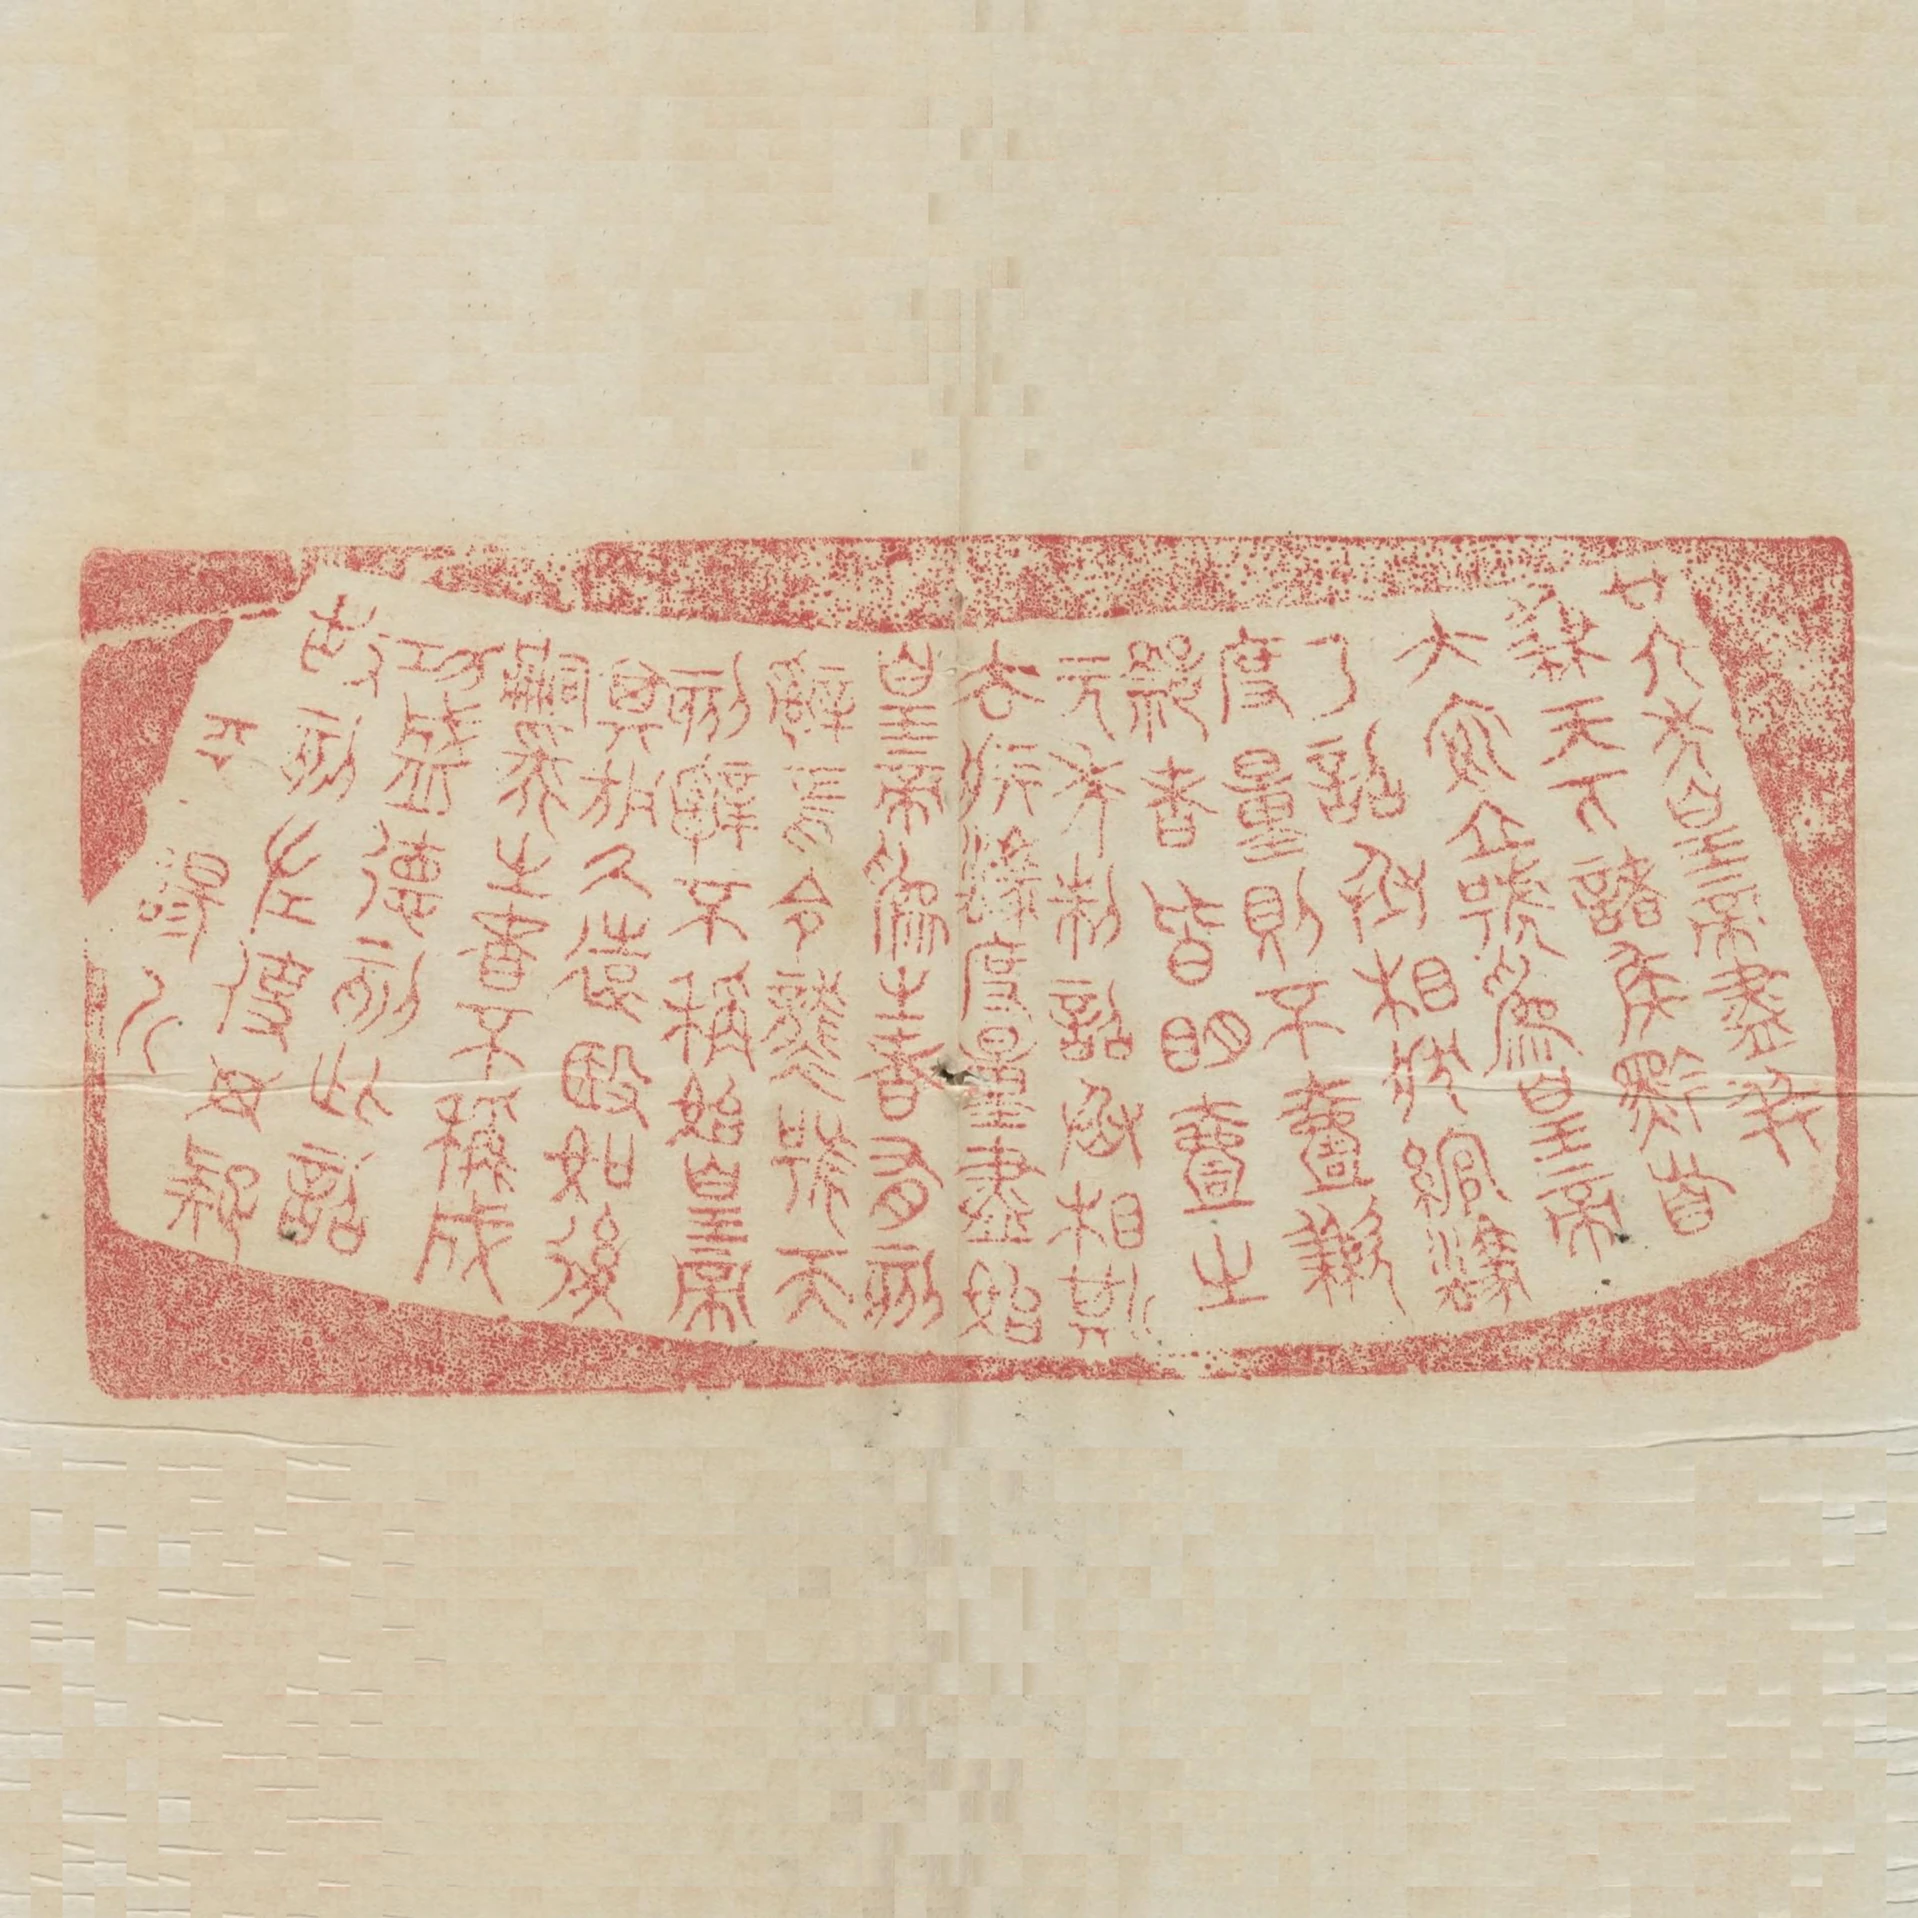 廿六年皇帝盡并
兼天下諸侯黔首
大安立號為皇帝
乃詔丞相狀綰灋
度量則不壹歉
疑者皆明壹之
元年制詔丞相斯
去疾灋度量盡始
皇帝為之者有刻
辭焉今襲號而
刻辭不稱始皇帝
其於久遠殹如後
嗣為之者不稱成
功盛德刻此詔
故刻左使毋疑